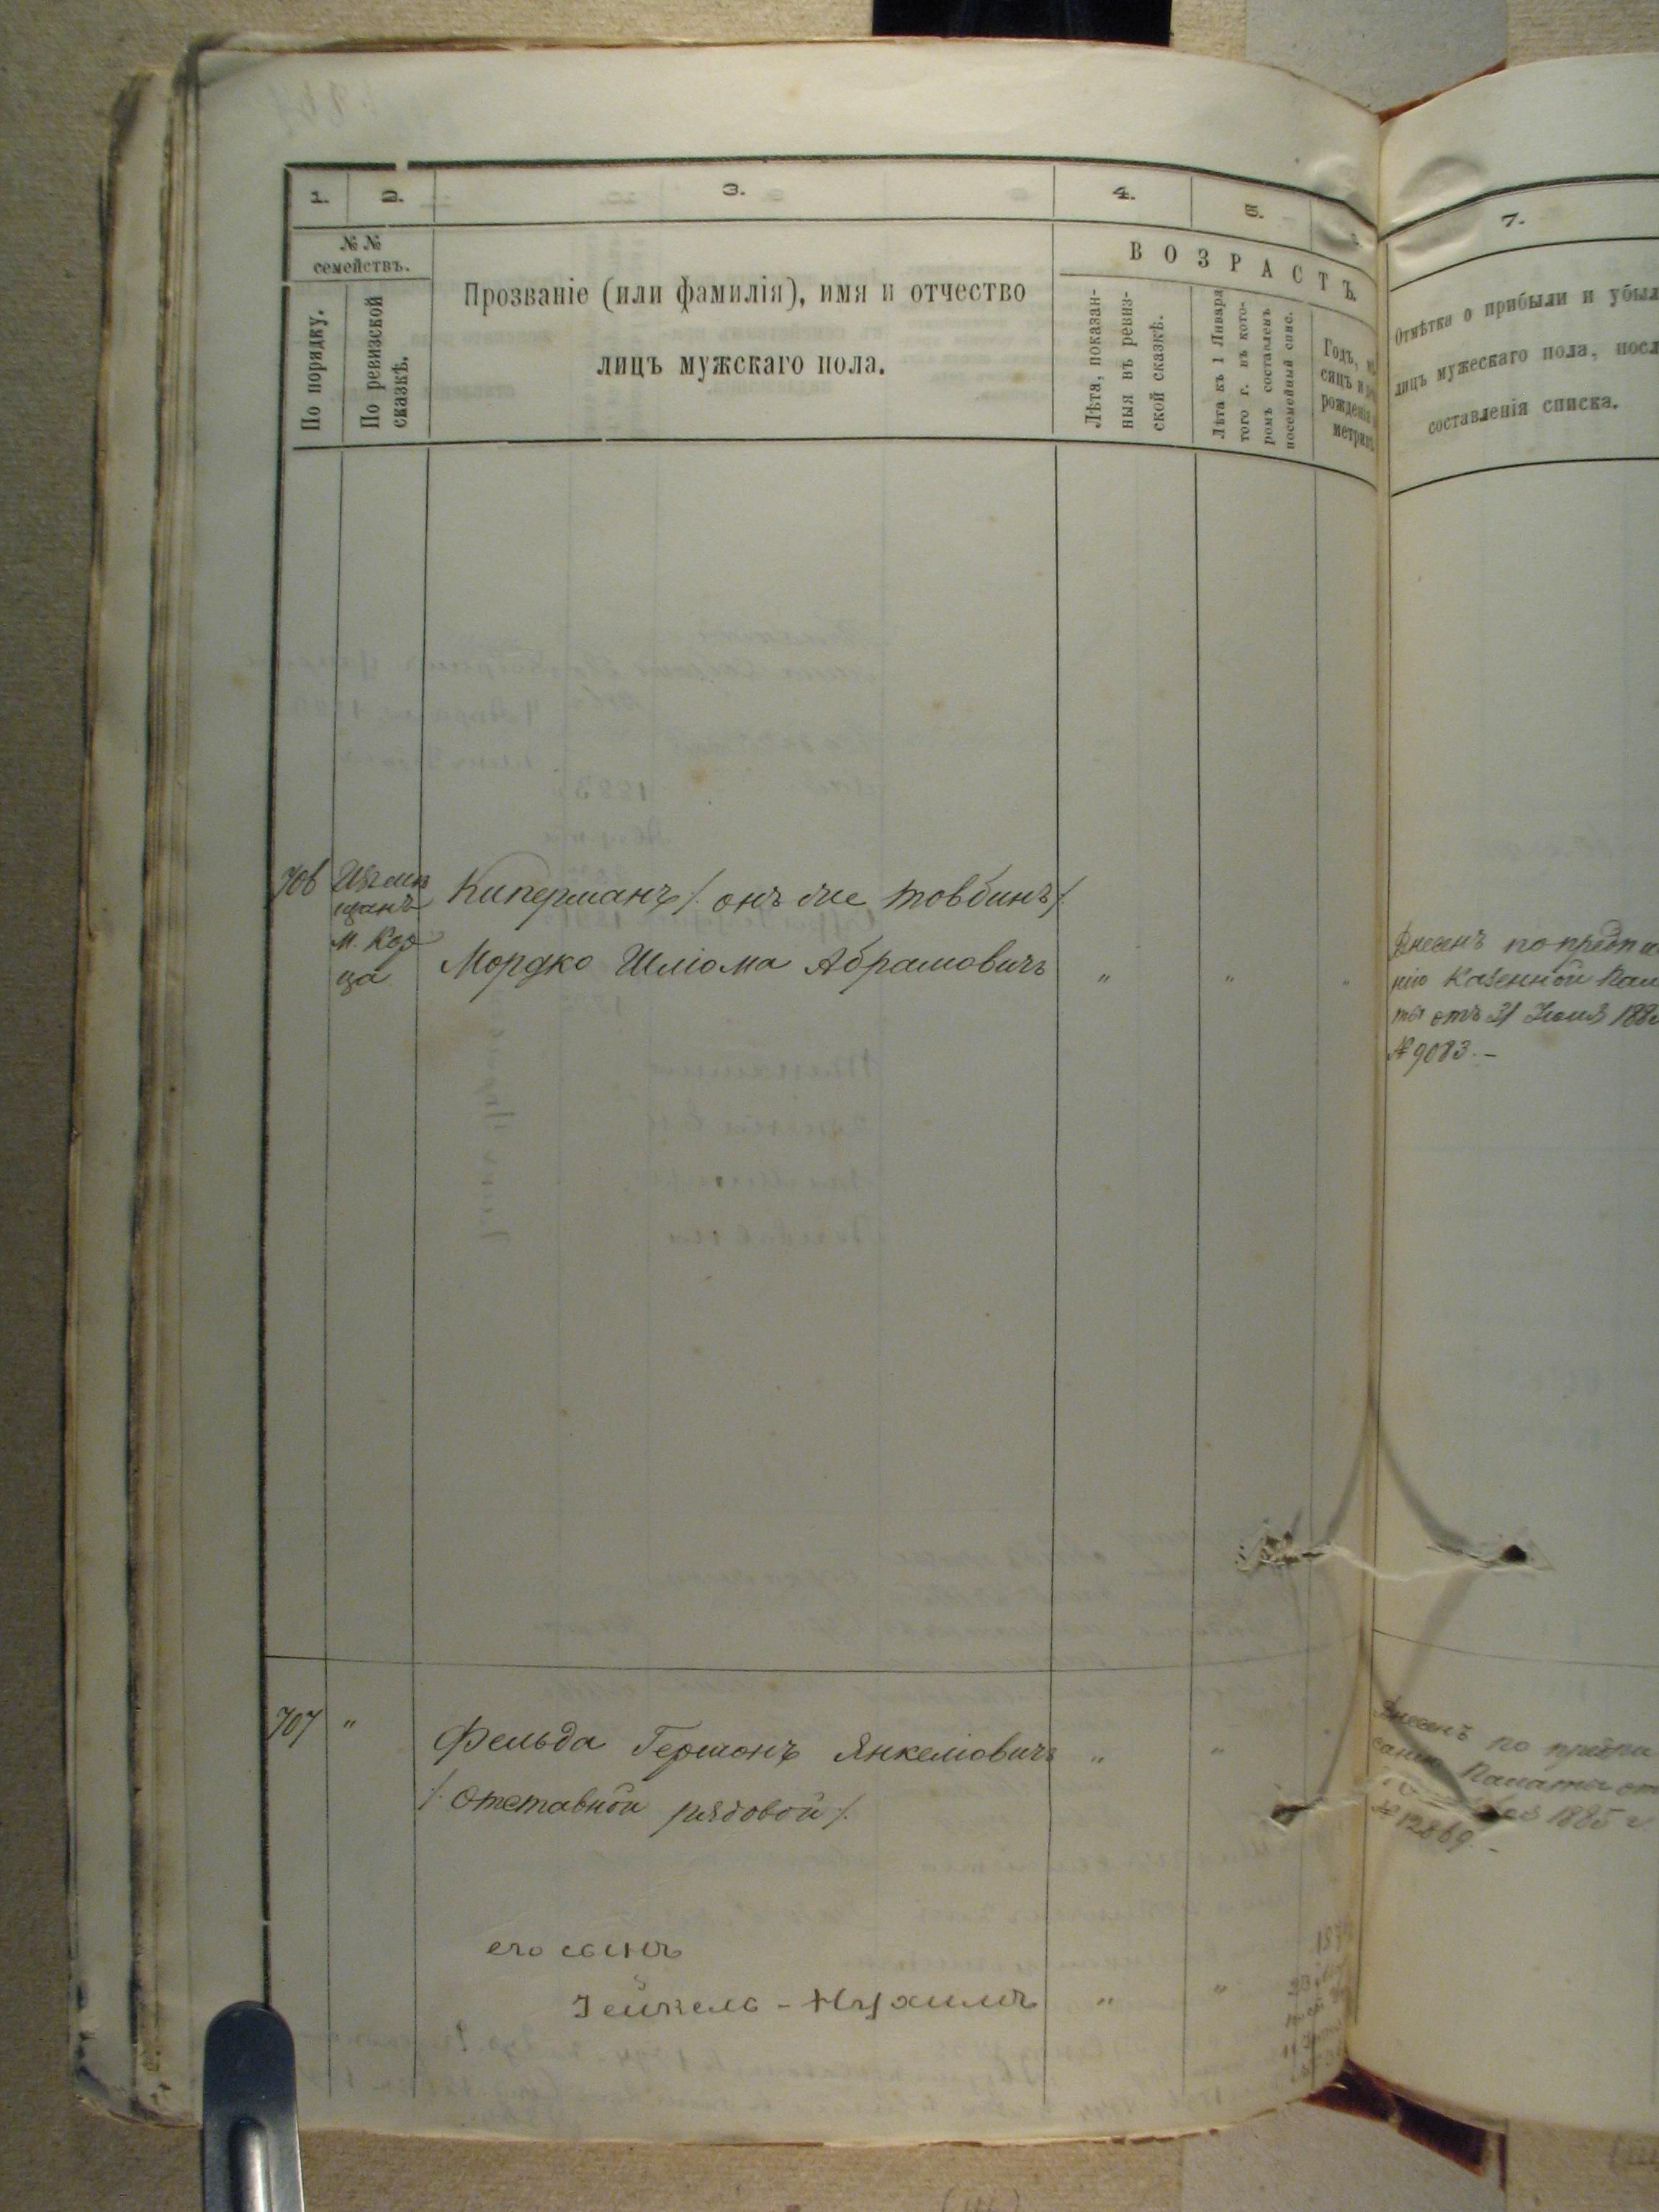 1.
2.
3.
4.
5.
7.
№ №
семействъ.
По порядку.
По ревизской
сказкѣ.
Прозваніе (или фамилія), имя и отчество
лицъ мужскаго пола.
ВОЗРАСТЪ.
Лѣта, показан-
ныя въ ревиз-
ской сказкѣ.
Лѣта къ 1 Января
того г. въ кото-
ромъ составленъ
посемейный спис.
Годъ, мѣ
сяцъ и
рожденія
метрик
Отмѣтка о прибыли и убыл
лицъ мужескаго пола, посл
составленія списка.
706
Мѣщан
м. Кор
ца
Киперманъ /. онъ же Товбинъ /.
Мордко Шліома Абрамовичъ " " "
Внесенъ по предпи
нію Казенной Пала
ты отъ 31 188
№ 9083. –
707 "
Фельда Гершонъ Янкеліовичъ " "
/. Отставной рядовой /.
Внесенъ по предпи
санію Палаты от
1885 г
№ 12869. –
его сынъ
Зейкель - Нухимъ " "